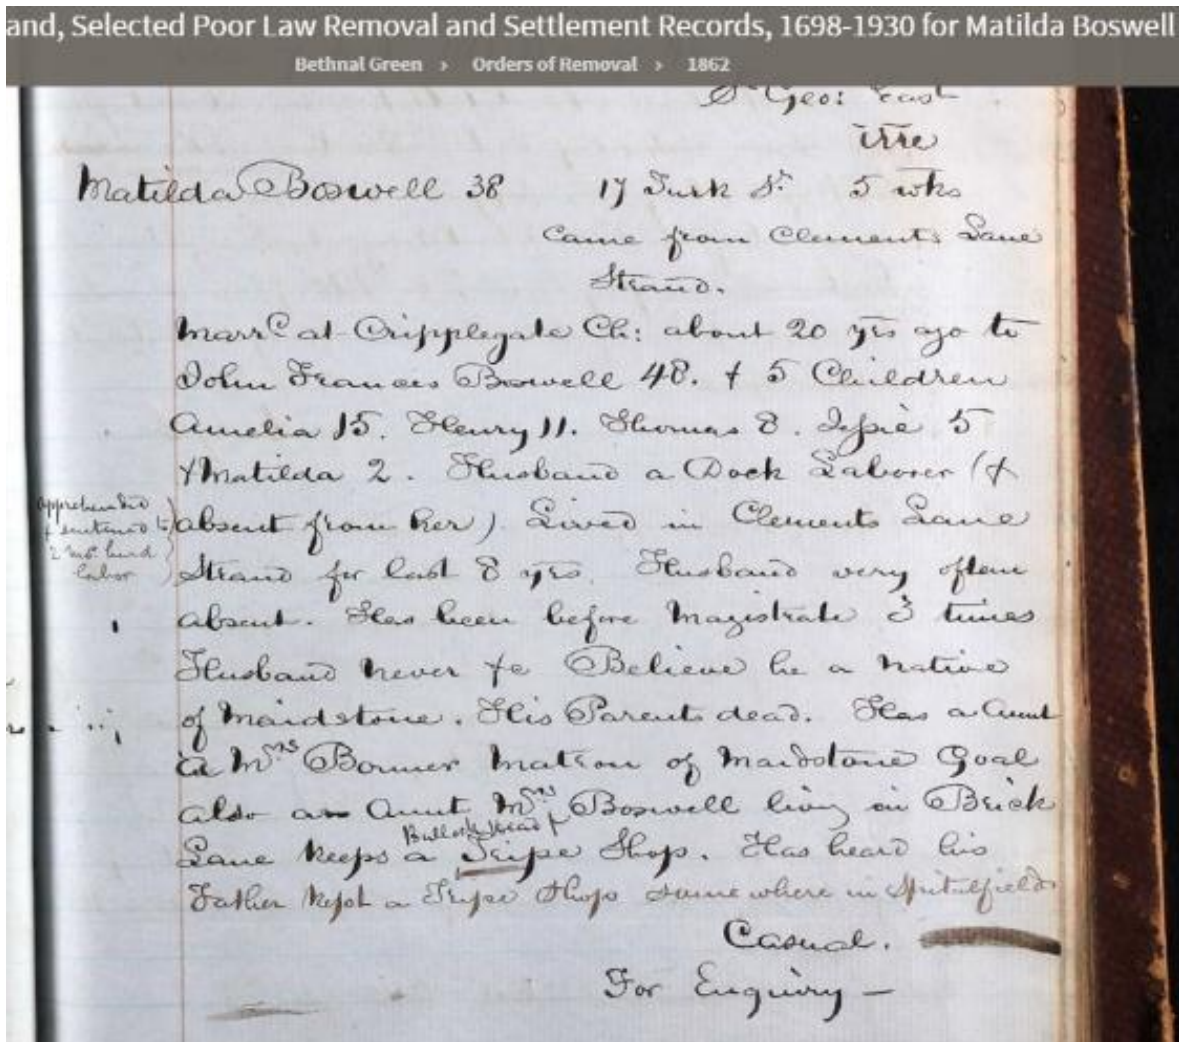 and, Selected Poor Law Removal and Settlement Records, 1698-1930 for Matilda Boswell
Bethnal Green › Orders of Removal › 1862
St Geo: East
irre
Matilda Boswell 38 17 Turk St 5 wks
Came from Clements Lane
Strand.
Marrd at Cripplegate Ch: about 20 yrs ago to
John Frances Boswell 48. & 5 Children
Amelia 15. Henry 11. Thomas 8. 5
& Matilda 2. Husband a Dock Laborer (&
apprehended
& sentenced to
2 mos. hard
labor
absent from her). Lived in Clements Lane
Strand for last 8 yrs. Husband very often
absent. Has been before Magistrate 3 times
Husband never &c Believe he a native
of Maidstone. His Parents dead. Has a Aunt
a Mrs Bonner Matron of Maidstone Goal
also an Aunt Mrs Boswell living in Brick
Bullocks Head &
Lane keeps a Tripe Shop. Has heard his
Father kept a Tripe Shop somewhere in Spitalfields
Casual.
For Enquiry —